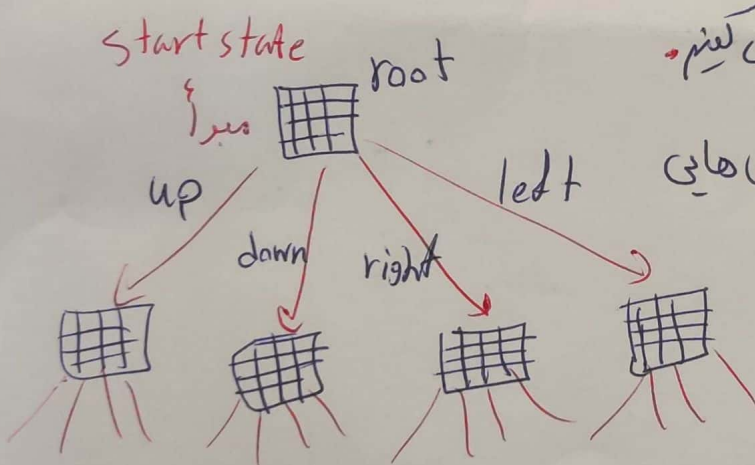 start state
root
مبدأ
up
down
right
left